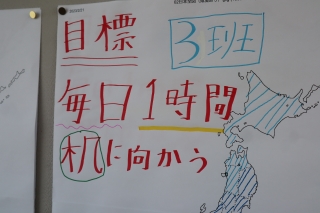 目標 3班
毎日1時間
机に向かう